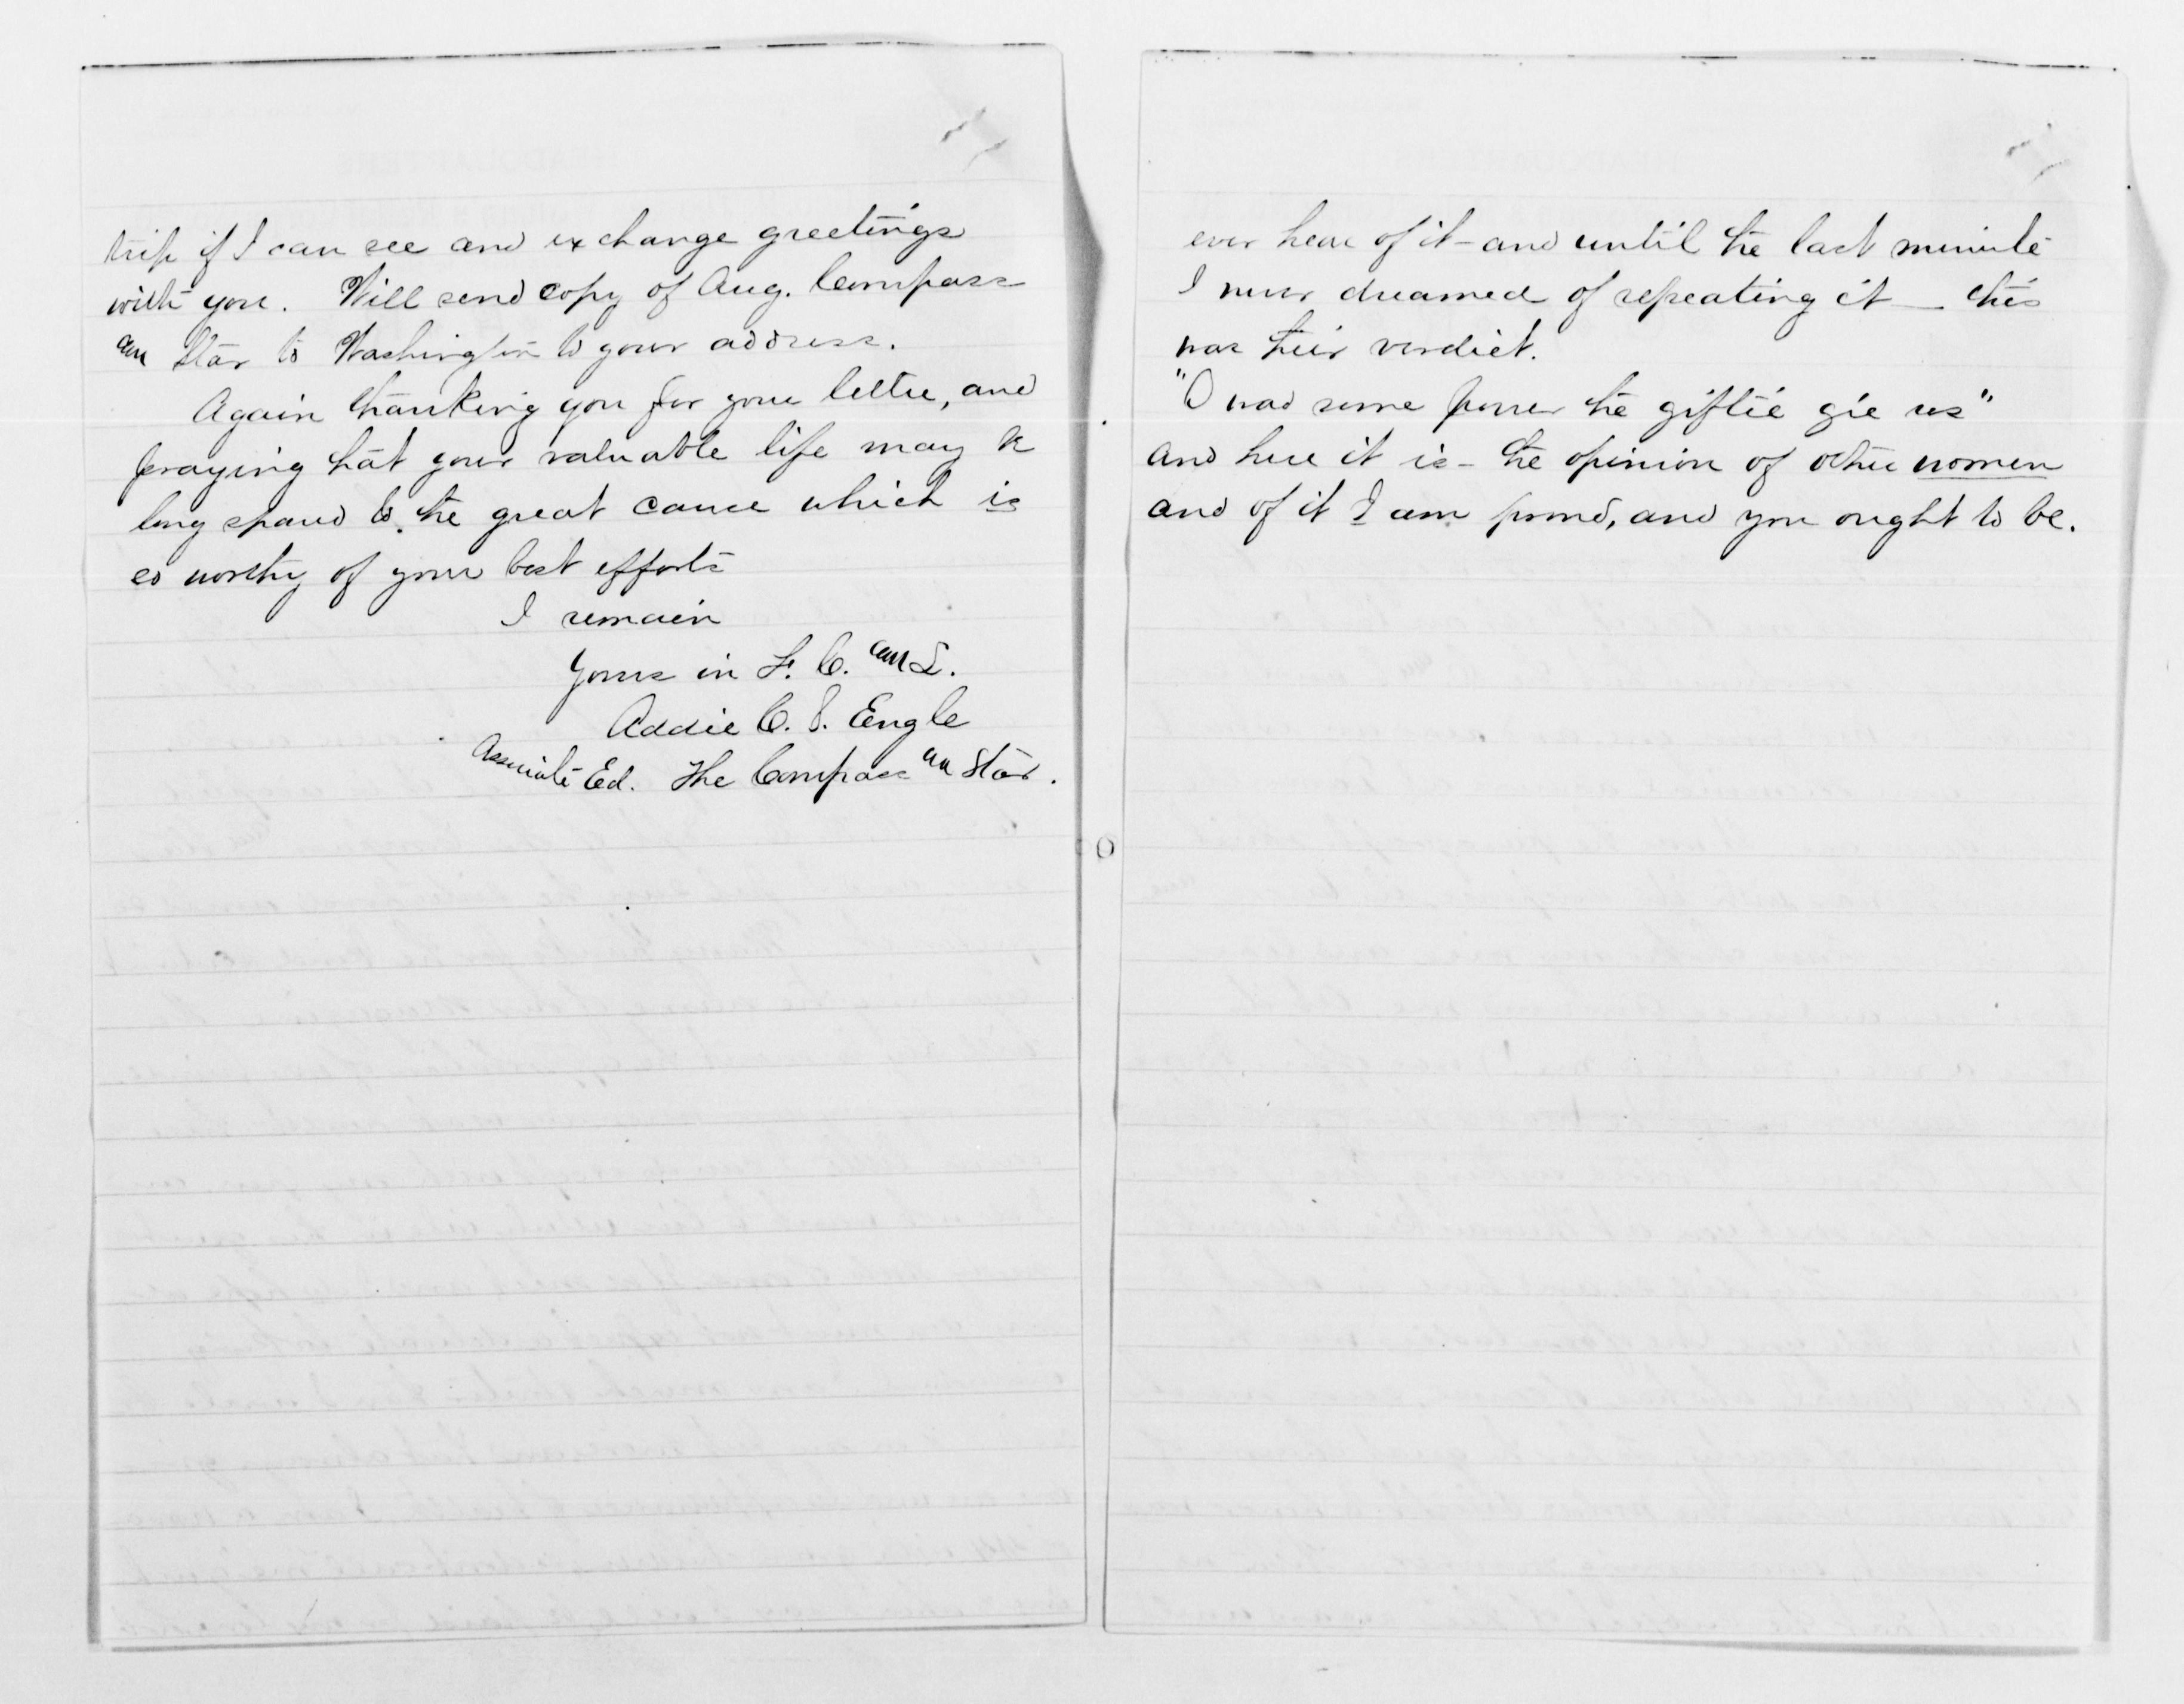 trip if I can see and exchange greetings
with you. Will send copy of Aug. Compass
and Star to Washington to your address.
Again thanking you for your letter, and
praying that your valuable life may be
long spared to the great cause which is
so worthy of your best efforts
I remain
Yours in F. C. and L.
Addie C. S. Engle
Associate Ed. The Compass and Star.
ever hear of it - and until the last minute
I never dreamed of repeating it — this
was their verdict.
"O wad some power the giftie gie us"
and here it is - the opinion of other women
and of it I am proud, and you ought to be.